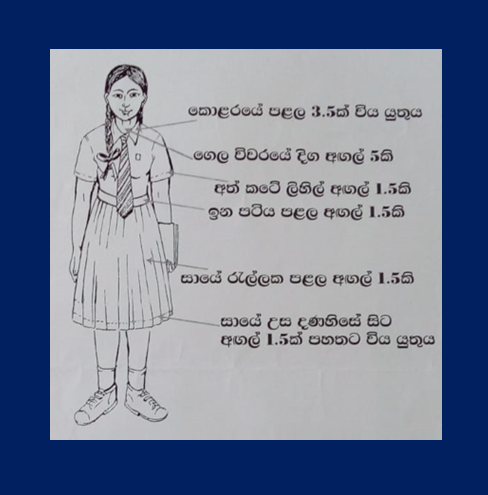 කොළරයේ පළල 3.5ක් විය යුතුය
ගෙල විවරයේ දිග අඟල් 5කි
අත් කටේ ලිහිල් අඟල් 1.5කි
ඉන පටිය පළල අඟල් 1.5කි
සායේ රැල්ලක පළල අඟල් 1.5කි
සායේ උස දණහිසේ සිට
අඟල් 1.5ක් පහතට විය යුතුය